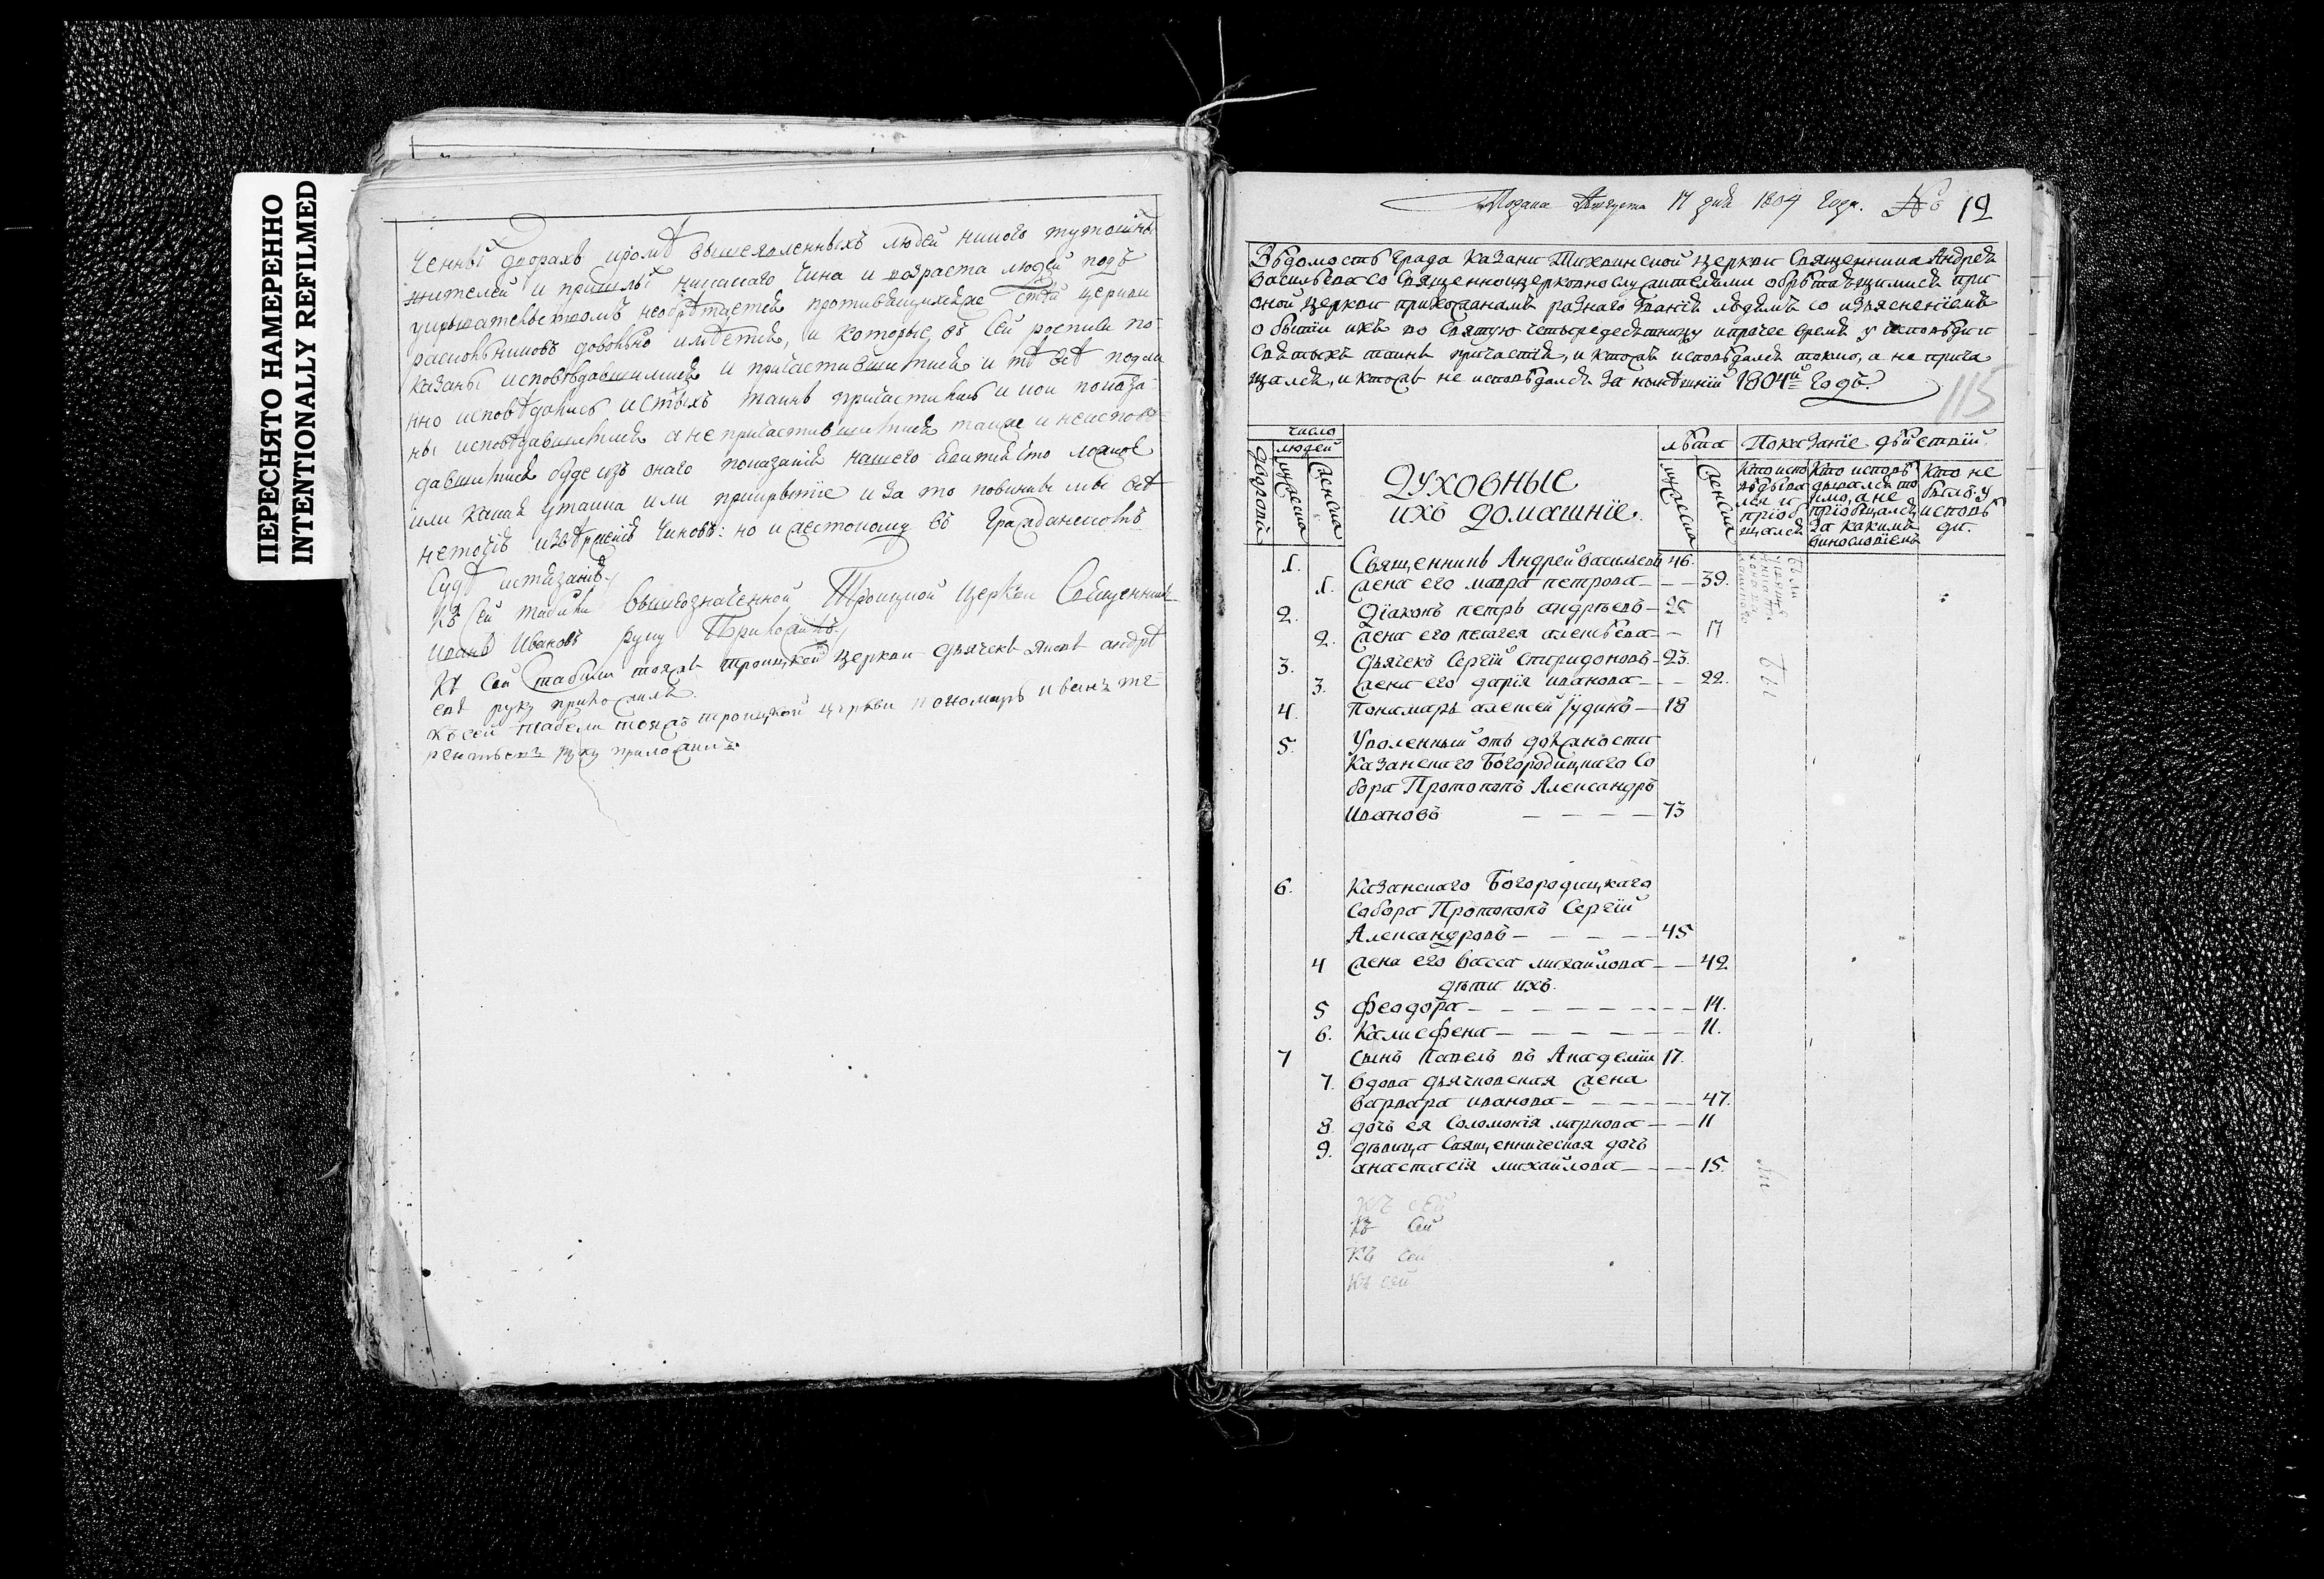 ПЕРЕСНЯТО НАМЕРЕННО
INTENTIONALLY REFILMED
жителей и пришлы никакаго чина и возраста людей подъ
укрывательствомъ необрѣтается противящихся же стѣй церкви
раскольниковъ довольно имѣется, и которые въ сей росписи по-
казаны исповѣдавшимися и причастившимися и тѣ всѣ подли
нно исповѣдались и стыхъ таинъ причастились и кои показа-
ны исповѣдавшимися а непричастившимися также и неиспов-
или какая утайка или прикрытіе и за то повинны мы всѣ
неточію изверженію чиновъ: но и жестокому въ Гражданскомъ
Судѣ истязанію
Къ сей табели вышеозначенной Троицкой церкви Священникъ
Иванъ Ивановъ руку Приложилъ
Къ сей табели тояжъ троицкой церкви дьячекъ яковъ андрѣ
евъ руку приложилъ
Къ сей табели тояжъ троицкой церкви пономарь иванъ те-
рентьевъ руку приложилъ
Подана Августа 17 дня 1804 Года. № 12
Вѣдомость Града Казани Тихвинской церкви Священника Андрея
Васильева со Священноцерковнослужительми обрѣтающимися при
оной церкви прихожанамъ разнаго званія людямъ со изъясненіемъ
о бытіи ихъ во Святую четыредесятницу и прочее время у исповѣди и
Святыхъ таинъ причастія, и ктожъ исповѣдался токмо, а не прича
щался, и ктожъ не исповѣдался. За нынѣшній 1804й Годъ.
115
число
людей
дворовъ
мужеска
женска
Духовные
ихъ домашніе.
лѣта
мужеска
женска
Показаніе дѣйствій.
Кто испо
вѣдыва
лся и
пріоб
щался
Кто исповѣ
дывался то
кмо, а не
пріобщался,
за какимъ
винословіемъ
Кто не
былъ у
исповѣ
ди.
1. Священникъ Андрей Васильевъ 46.
1. Жена его мавра петрова 39.
2. Діаконъ петръ андрѣевъ 25
2. Жена его пелагея алексѣева 17
3. Дьячекъ Сергій Спиридоновъ 23.
3. Жена его дарія иванова 22.
4. Пономарь алексей Іудинъ 18
5. Уволенный отъ должности
Казанскаго Богородицкаго Со
бора Протопопъ Александръ
Ивановъ 73
6. Казанскаго Богородицкаго
Собора Протопопъ Сергій
Александровъ 45
4 Жена его Васса михайлова 42
дѣти ихъ.
5 Феодора 14.
6. Калисфена 11.
7 Сынъ Павелъ въ Академіи 17.
7. Вдова дьячковская жена
варвара иванова 47.
8. дочь ея Соломонія маркова 11
9. дѣвица Священническая дочь
анастасія михайлова 15.
Бы
ли
Къ сей
Къ Сей
Къ сей
Къ сей